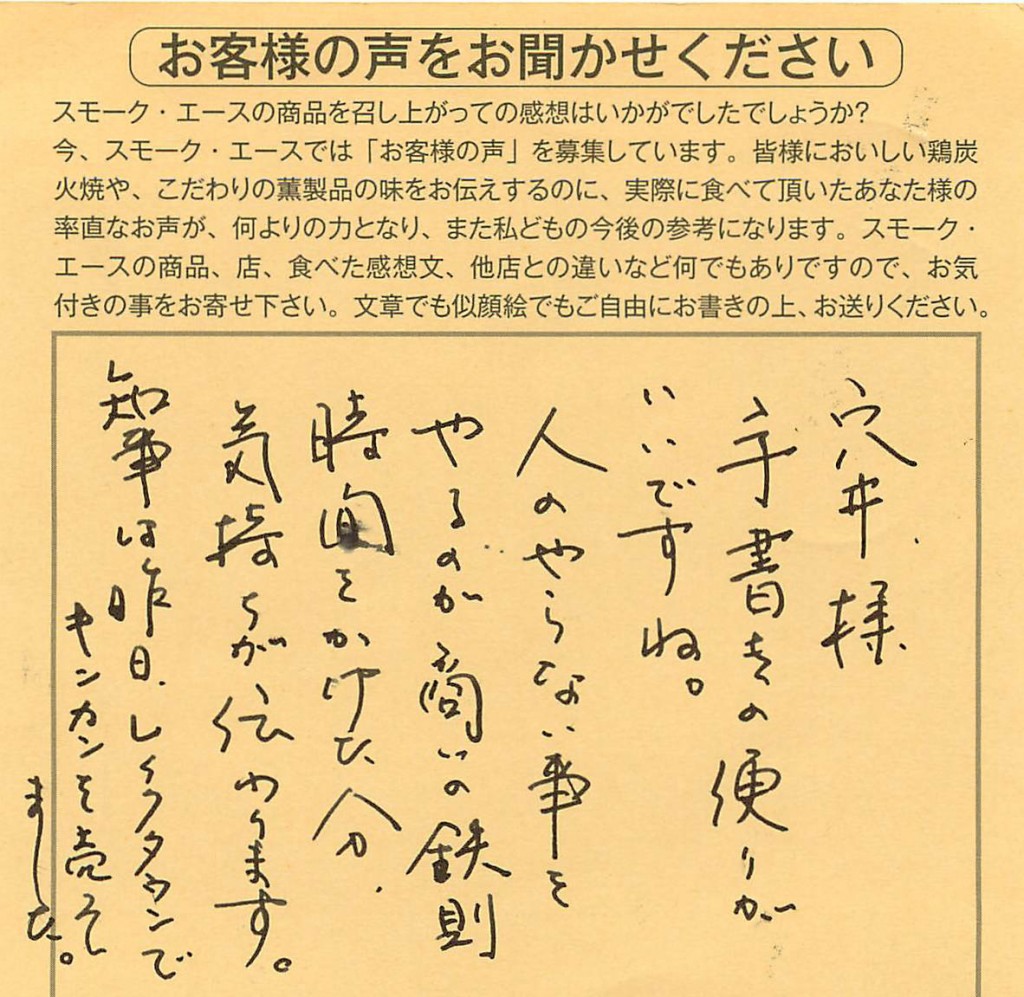 お客様の声をお聞かせください
スモーク・エースの商品を召し上がっての感想はいかがでしたでしょうか?
今、スモーク・エースでは「お客様の声」を募集しています。皆様においしい鶏炭
火焼や、こだわりの薫製品の味をお伝えするのに、実際に食べて頂いたあなた様の
率直なお声が、何よりの力となり、また私どもの今後の参考になります。スモーク・
エースの商品、店、食べた感想文、他店との違いなど何でもありですので、お気
付きの事をお寄せ下さい。文章でも似顔絵でもご自由にお書きの上、お送りください。
穴井様
手書きの便りが
いいですね。
人のやらない事を
やるのが商いの鉄則
時間をかけた分、
気持ちが伝わります。
知事は昨日、レイクタウンで
キンカンを売って
ました。